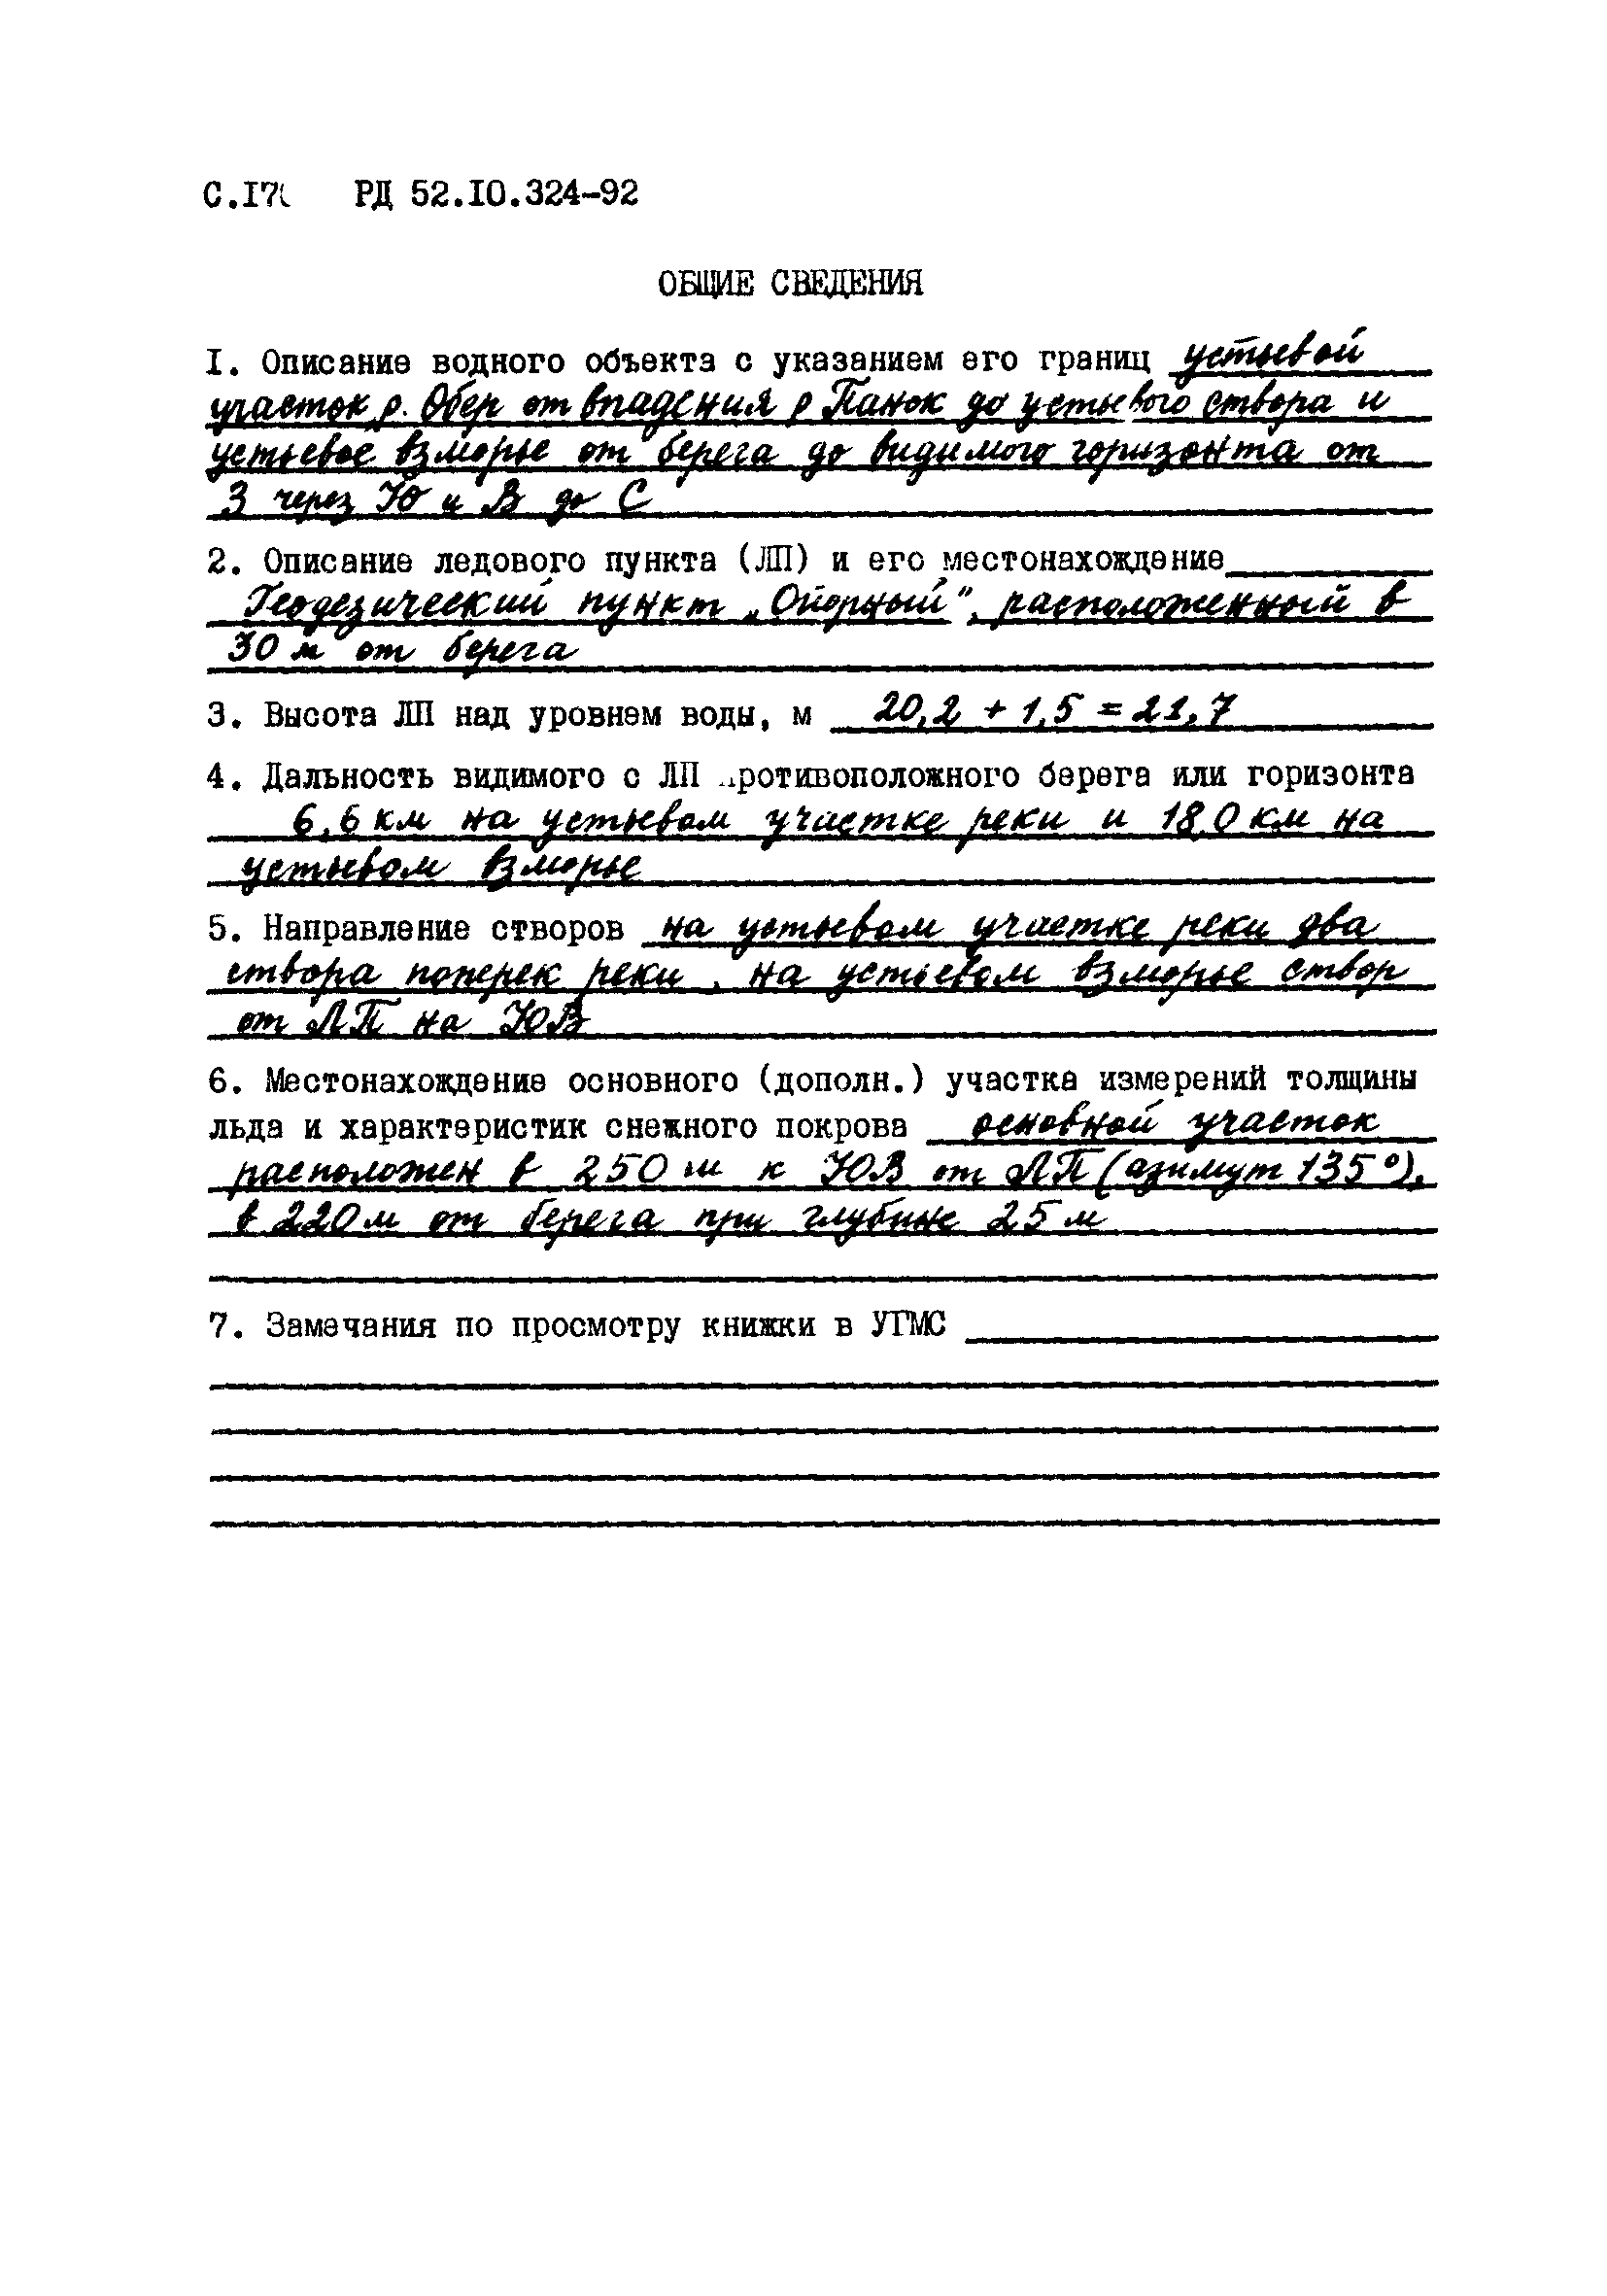 РД 52.10.324-92
ОБЩИЕ СВЕДЕНИЯ
I. Описание водного объекта с указанием его границ устьевой
участок р. Обер от впадения р Панок до устьевого створа и
устьевое взморье от берега до видимого горизонта от
З через Ю и В до С
2. Описание ледового пункта (ЛП) и его местонахождение
Геодезический пункт „Опорный", расположенный в
30 м от берега
3. Высота ЛП над уровнем воды, м 20,2 + 1,5 = 21,7
4. Дальность видимого с ЛП противоположного берега или горизонта
6,6 км на устьевом участке реки и 18,0 км на
устьевом взморье
5. Направление створов на устьевом участке реки два
створа поперек реки, на устьевом взморье створ
от ЛП на ЮВ
6. Местонахождение основного (дополн.) участка измерений толщины
льда и характеристик снежного покрова основной участок
расположен в 250 м к ЮВ от ЛП (азимут 135°),
в 220 м от берега при глубине 25 м
7. Замечания по просмотру книжки в УГМС